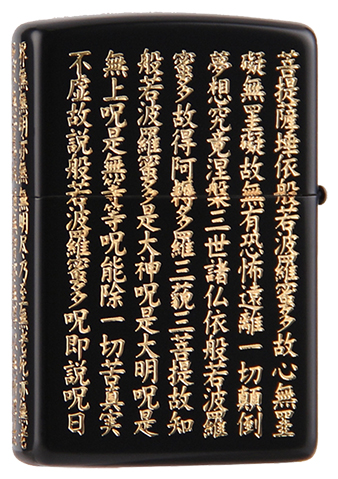 菩提薩埵依般若波羅蜜多故心無罣
礙無罣礙故無有恐怖遠離一切顛倒
夢想究竟涅槃三世諸仏依般若波羅
蜜多故得阿耨多羅三藐三菩提故知
般若波羅蜜多是大神呪是大明呪是
無上呪是無等等呪能除一切苦真実
不虚故説般若波羅蜜多呪即説呪日